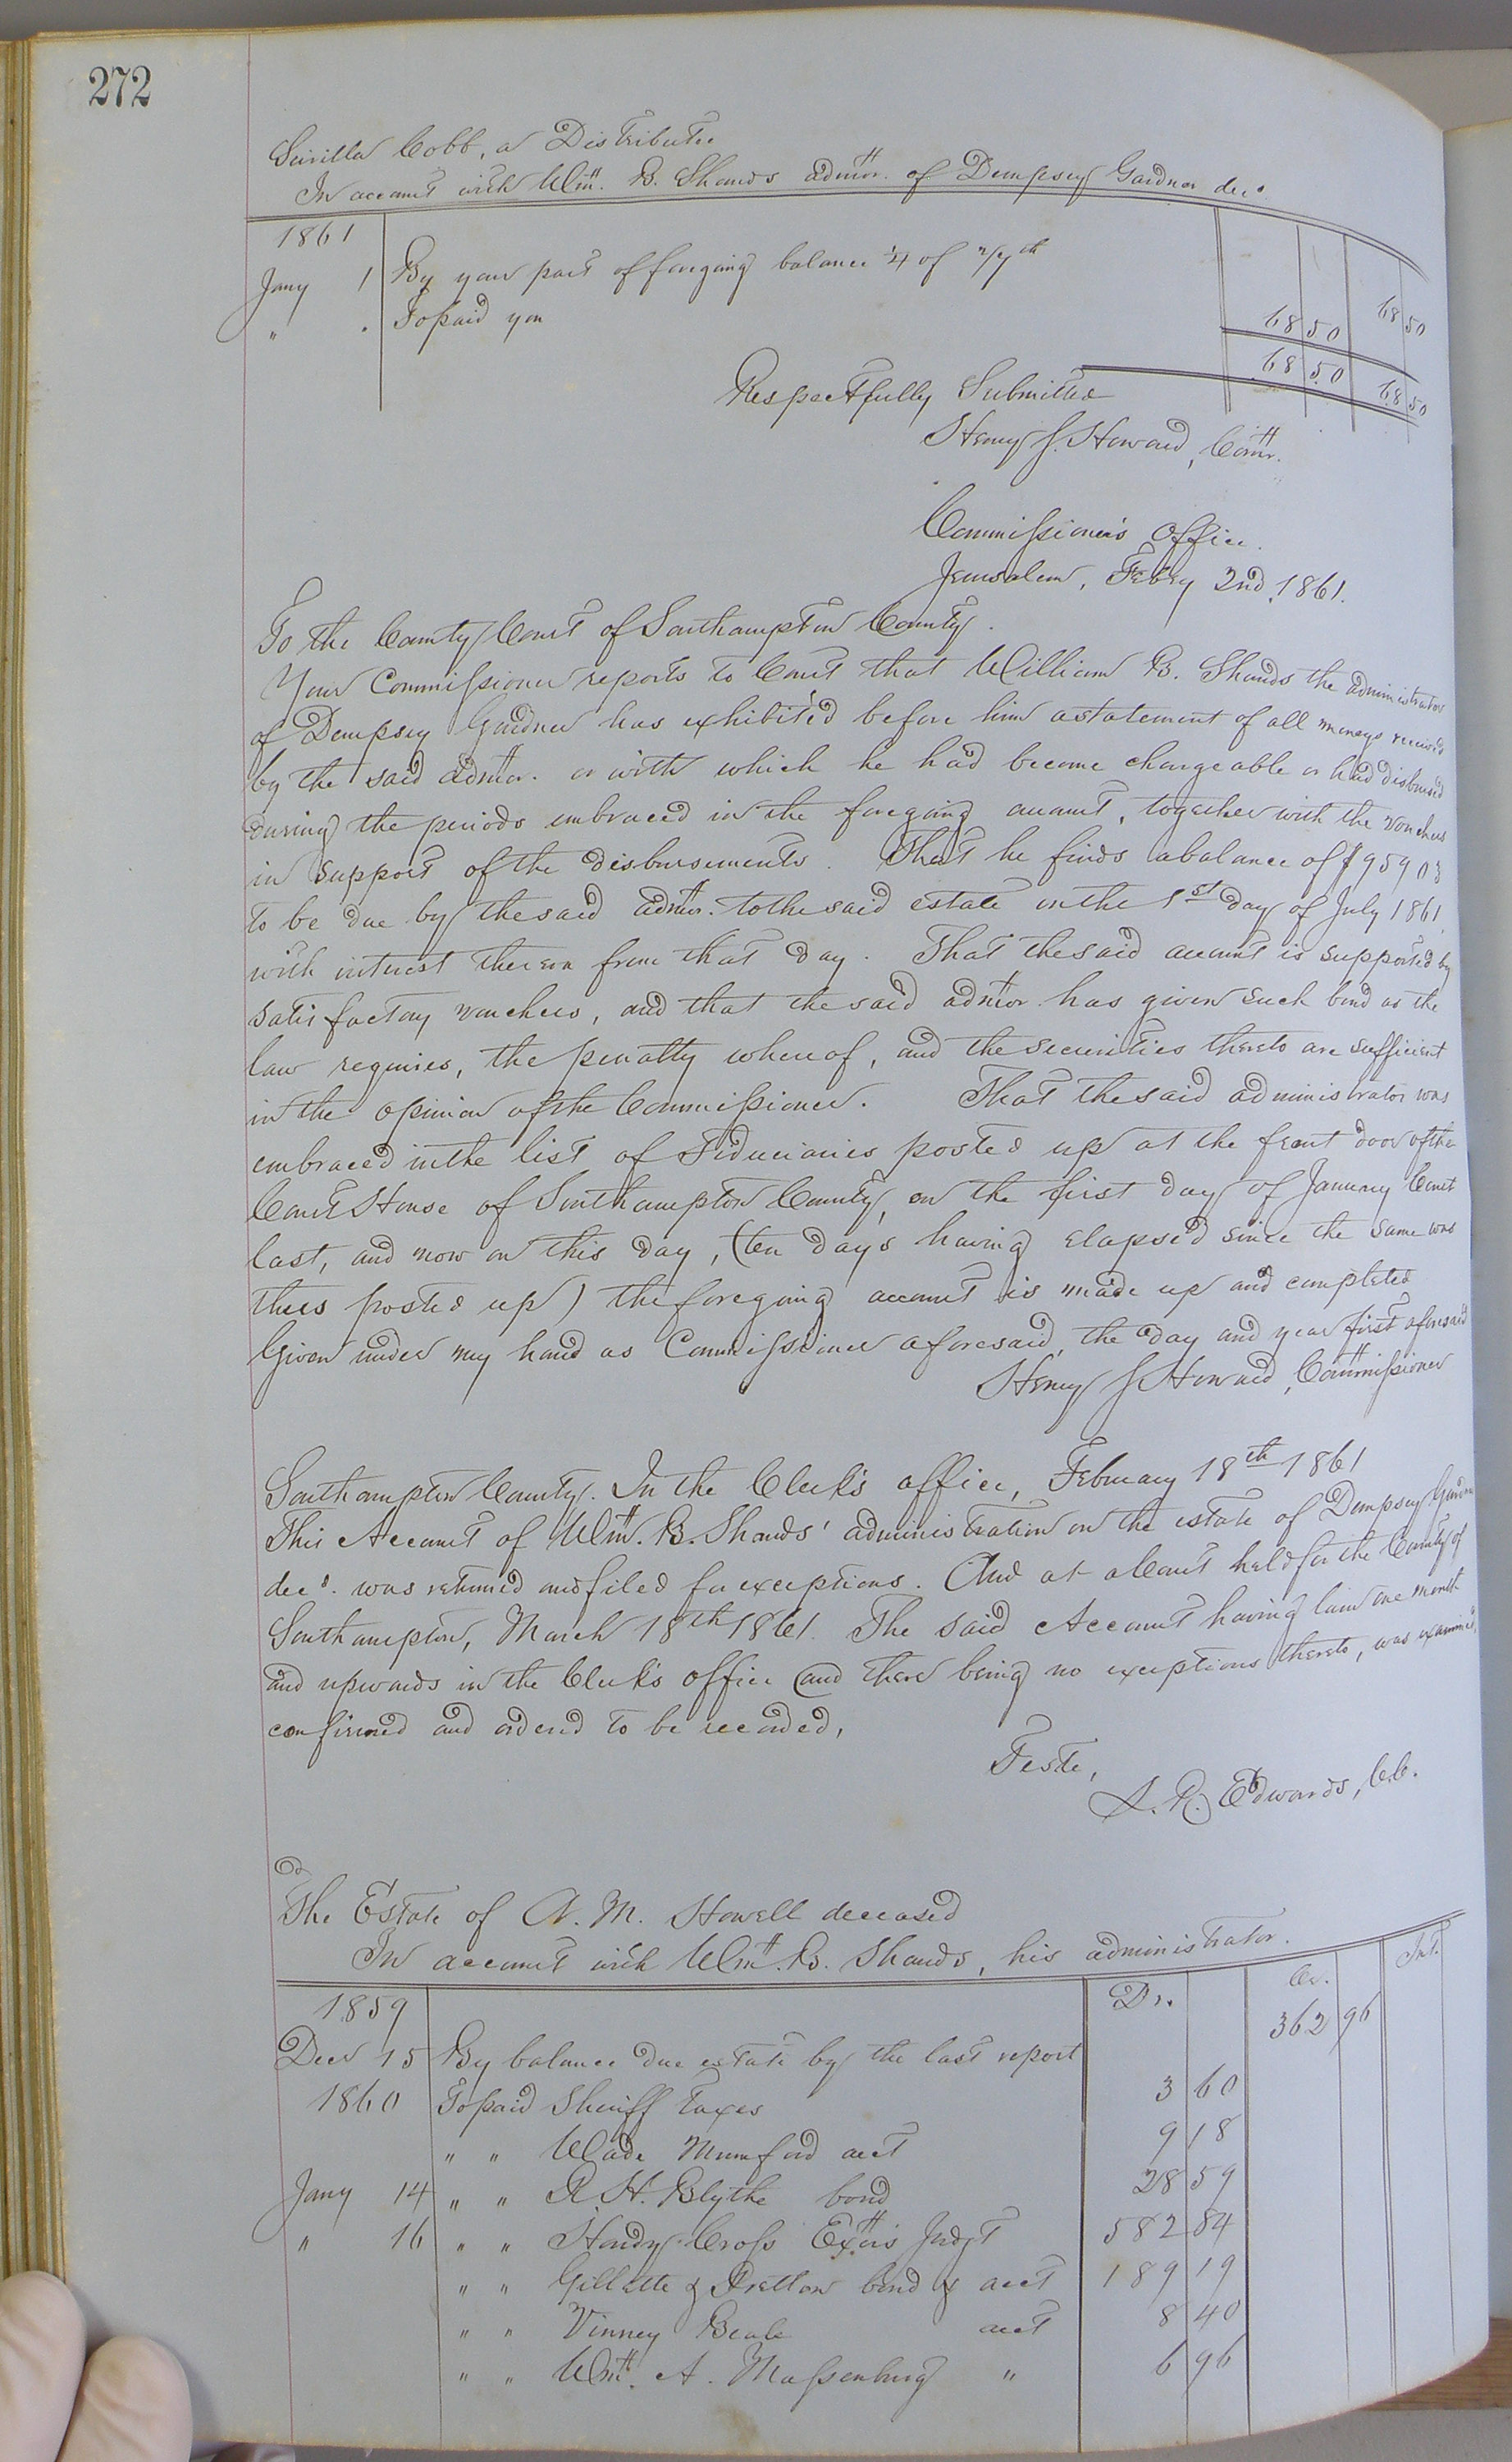 272
Cobb, a Distributee
In account with Wm. B. Shands admor. of Dempsey Gardner decd.
1861
Jany 1 By your part of foregoing balance 1/4 of
" " To paid you 68 50 68 50
68 50 68 50
Respectfully Submitted
Henry J. Howard, Comr.
Commissioner's Office.
Jerusalem, Febry 2nd, 1861.
To the County Court of Southampton County.
Your Commissioner reports to Court that William B. Shands the administrator
of Dempsey Gardner has exhibited before him a statement of all moneys received
by the said admor. or with which he had become chargeable or had disbursed
during the periods embraced in the foregoing account, together with the vouchers
in support of the disbursements. That he finds a balance of $959 03
to be due by the said admor. to the said estate on the 1st day of July 1861
with interest thereon from that day. That the said account is supported by
satisfactory vouchers, and that the said admor has given such bond as the
law requires, the penalty whereof, and the securities thereto are sufficient
in the opinion of the Commissioner. That the said administrator was
embraced in the list of Fiduciaries posted up at the front door of the
Court House of Southampton County, on the first day of January Court
last, and now on this day, (ten days having elapsed since the same was
thus posted up) the foregoing account is made up and completed
Given under my hand as Commissioner aforesaid, the day and year first aforesaid
Henry J. Howard, Commissioner
Southampton County. In the Clerk's office, February 18th 1861
This Account of Wm. B. Shands' administration on the estate of Dempsey Gardner
decd. was returned and filed for exceptions. And at a Court held for the County of
Southampton, March 18th 1861. The said Account having lain one month
and upwards in the Clerk's office and there being no exceptions thereto, was examined,
confirmed and ordered to be recorded,
Teste,
L. R. Edwards, C.C.
The Estate of A. M. Howell deceased
In account with Wm. B. Shands, his administrator.
1859 Dr. Cr. Int.
Decr 15 By balance due estate by the last report 362 96
1860 To paid Sheriff taxes 3 60
" " Wade Mumford acct 9 18
Jany 14 " " R. H. Blythe bond 28 59
" 16 " " Hardy Cross Exors Judgt 582 84
" " Gillette & Pretlow bond & acct 189 19
" " Vinney Beale acct 8 40
" " Wm. A. Massenburg " 6 96